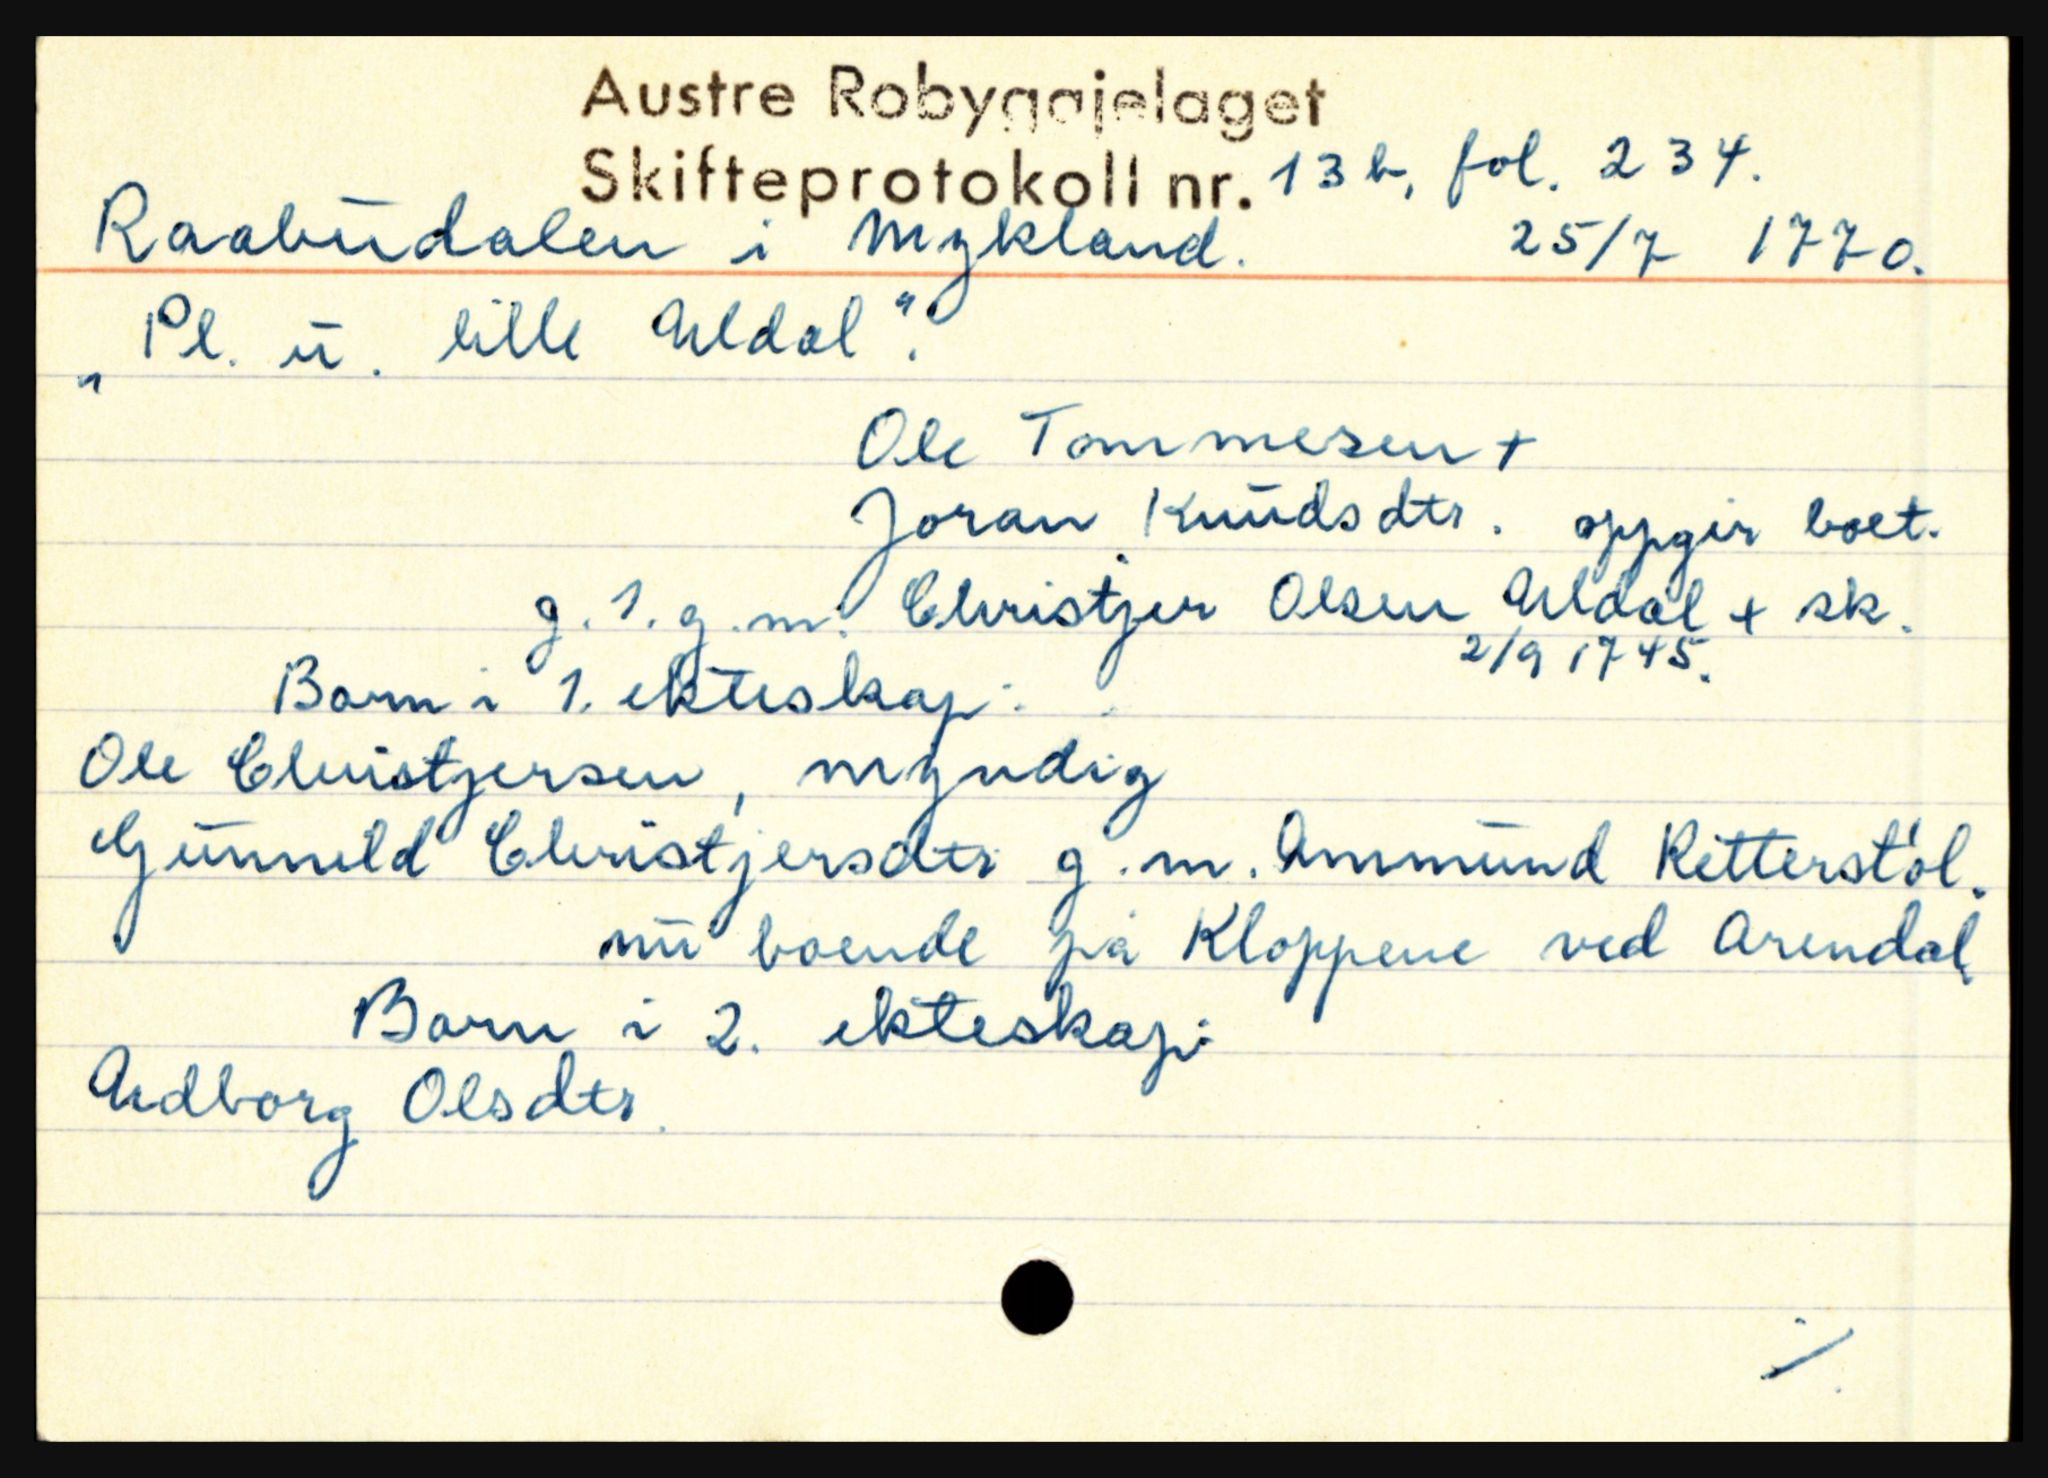 Austre Robyggjelaget
Skifteprotokoll nr. 13 b, fol. 234.
Raabudalen i Mykland. 25/7 1770.
"Pl. u. lille Uldal".
Ole Tommesen +
Joran Knudsdtr. oppgir boet.
g. 1. g. m. Christjer Olsen Uldal + sk.
2/9 1745.
Born i 1. ekteskap:
Ole Christjersen, myndig
Gunneld Christjersdtr g. m. Ammund Retterstøl.
nu boende på Kloppene ved Arendal
Born i 2. ekteskap:
Udborg Olsdtr.